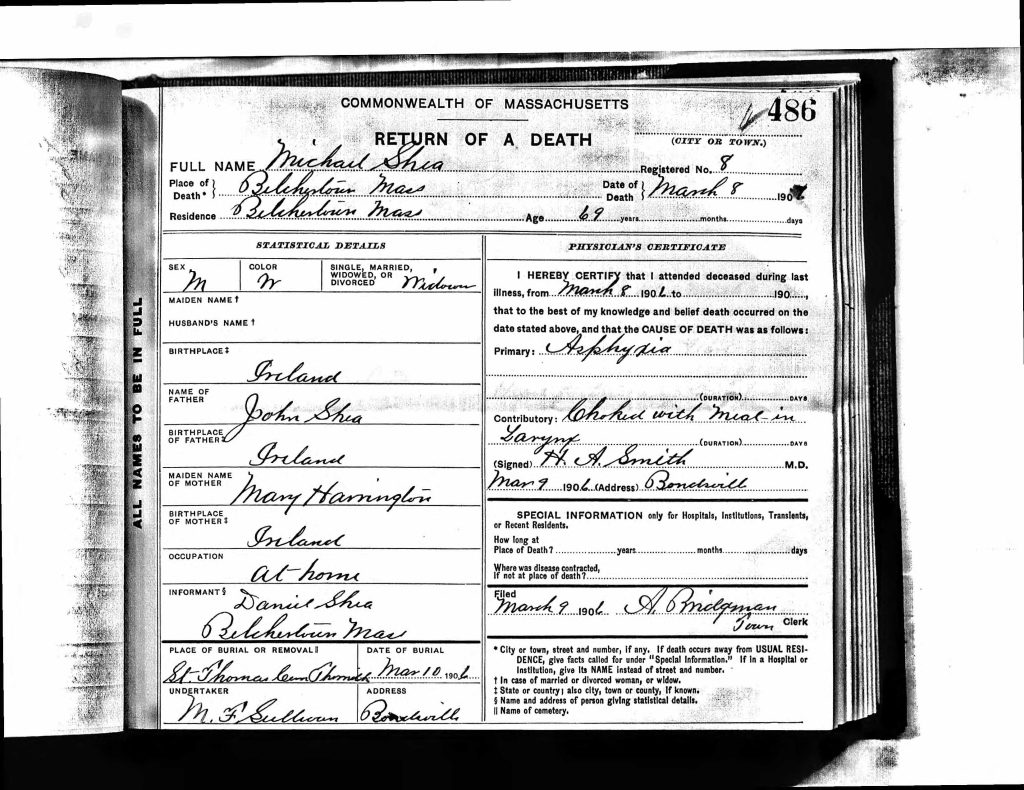 486
COMMONWEALTH OF MASSACHUSETTS
RETURN OF A DEATH
(CITY OR TOWN.)
FULL NAME Michael Shea Registered No. 8
Place of Death* } Belchertown Mass Date of Death } March 8 190
Residence Belchertown Mass Age 69 years months days
ALL NAMES TO BE IN FULL
STATISTICAL DETAILS
SEX M
COLOR W
SINGLE, MARRIED, WIDOWED, OR DIVORCED
MAIDEN NAME †
HUSBAND'S NAME †
BIRTHPLACE ‡
Ireland
NAME OF FATHER
John Shea
BIRTHPLACE OF FATHER ‡
Ireland
MAIDEN NAME OF MOTHER
Mary Harrington
BIRTHPLACE OF MOTHER ‡
Ireland
OCCUPATION
At home
INFORMANT §
Daniel Shea
Belchertown Mass
PLACE OF BURIAL OR REMOVAL ||
St. Thomas Cem
DATE OF BURIAL
Mar 10 1906
UNDERTAKER
M. F. Sullivan
ADDRESS
Bondsville
PHYSICIAN'S CERTIFICATE
I HEREBY CERTIFY that I attended deceased during last
illness, from March 8 1906 to 190 ,
that to the best of my knowledge and belief death occurred on the
date stated above, and that the CAUSE OF DEATH was as follows:
Primary: Asphyxia
(DURATION) DAYS
Contributory: Choked with meat in
Larynx (DURATION) DAYS
(Signed) H. A. Smith M.D.
Mar 9 1906 (Address) Bondsvill
SPECIAL INFORMATION only for Hospitals, Institutions, Transients,
or Recent Residents.
How long at
Place of Death? years months days
Where was disease contracted,
If not at place of death?
Filed
March 9 1906 A. Bridgman
Town Clerk
* City or town, street and number, if any. If death occurs away from USUAL RESI-
DENCE, give facts called for under "Special Information." If in a Hospital or
Institution, give its NAME instead of street and number.
† In case of married or divorced woman, or widow.
‡ State or country; also city, town or county, if known.
§ Name and address of person giving statistical details.
|| Name of cemetery.